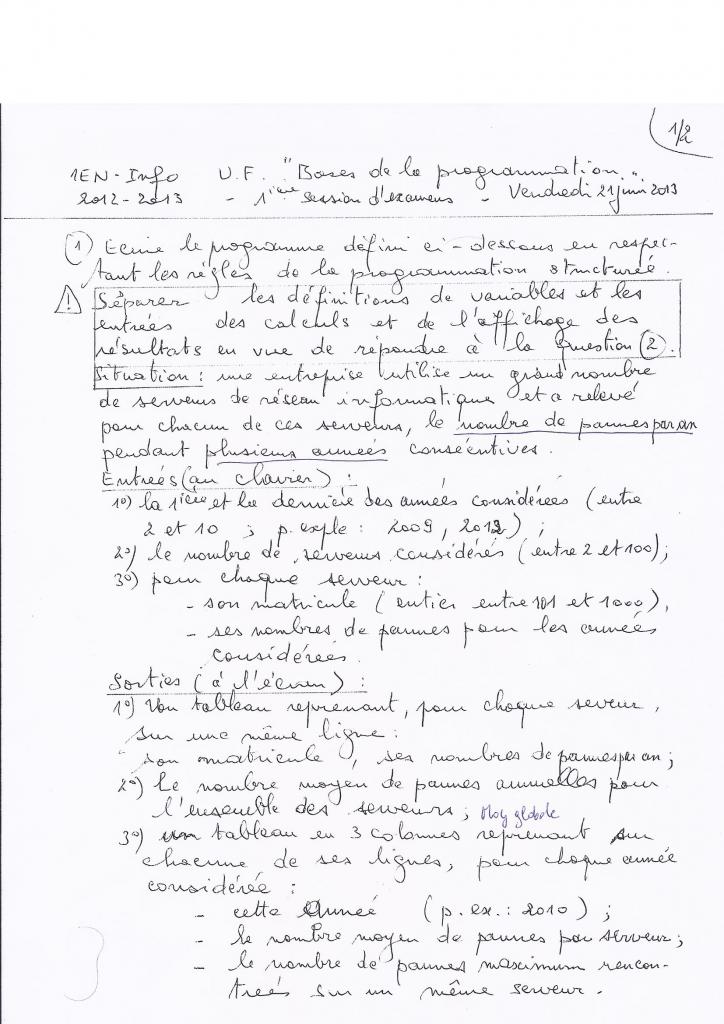 1/2
1EN-Info U.F. "Bases de la programmation"
2012-2013 - 1ière session d'examens - Vendredi 21 juin 2013
1 Ecrire le programme défini ci-dessous en respec-
tant les règles de la programmation structurée.
! Séparer les définitions de variables et les
entrées des calculs et de l'affichage des
résultats en vue de répondre à la question 2.
Situation : une entreprise utilise un grand nombre
de serveurs de réseau informatique et a relevé
pour chacun de ces serveurs, le nombre de pannes par an
pendant plusieurs années consécutives.
Entrées (au clavier) :
1°) la 1ière et la dernière des années considérées (entre
2 et 10 ; p. exple : 2009, 2012) ;
2°) le nombre de serveurs considérés (entre 2 et 100) ;
3°) pour chaque serveur :
- son matricule (entier entre 101 et 1000),
- ses nombres de pannes pour les années
considérées.
Sorties (à l'écran) :
1°) Un tableau reprenant, pour chaque serveur,
sur une même ligne :
son matricule, ses nombres de pannes par an ;
2°) Le nombre moyen de pannes annuelles pour
l'ensemble des serveurs ; Moy globale
3°) un tableau en 3 colonnes reprenant sur
chacune de ses lignes, pour chaque année
considérée :
- cette année (p. ex. : 2010) ;
- le nombre moyen de pannes par serveur ;
- le nombre de pannes maximum rencon-
trées sur un même serveur.